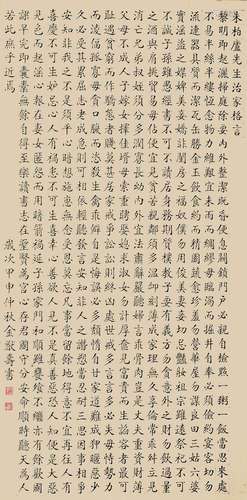 朱柏廬先生治家格言
黎明即起灑掃庭除要內外整潔既昏便息關鎖門戶必親自檢點一粥一飯當思來處
不易半絲半縷恆念物力維艱宜未雨而綢繆毋臨渴而掘井自奉必須儉約宴客切勿
流連器具質而潔瓦缶勝金玉飲食約而精園蔬愈珍羞勿營華屋勿謀良田三姑六婆
實淫盜之媒婢美妾嬌非閨房之福奴僕勿用俊美妻妾切忌豔妝祖宗雖遠祭祀不可
不誠子孫雖愚經書不可不讀居身務期質樸教子要有義方勿貪意外之財勿飲過量
之酒與肩挑貿易毋佔便宜見貧苦親鄰須多溫卹刻薄成家理無久享倫常乖舛立見
消亡兄弟叔姪須分多潤寡長幼內外宜法肅辭嚴聽婦言乖骨肉豈是丈夫重資財薄
父母不成人子嫁女擇佳婿毋索重聘娶媳求淑女勿計厚奩見富貴而生諂容者最可
恥遇貧窮而作驕態者賤莫甚居家戒爭訟訟則終凶處世戒多言言多必失毋恃勢力
而凌逼孤寡毋貪口腹而恣殺生禽乖僻自是悔誤必多頹惰自甘家道難成狎暱惡少
久必受其累屈志老成急則可相依輕聽發言安知非人之譖愬當忍耐三思因事相爭
安知非我之不是須平心暗想施惠無念受恩莫忘凡事當留餘地得意不宜再往人有
喜慶不可生妒忌心人有禍患不可生喜幸心善欲人見不是真善惡恐人知便是大惡
見色而起淫心報在妻女匿怨而用暗箭禍延子孫家門和順雖饔飧不繼亦有餘歡國
課早完即囊橐無餘自得至樂讀書志在聖賢為官心存君國守分安命順時聽天為人
若此庶乎近焉
歲次甲申仲秋金壽書